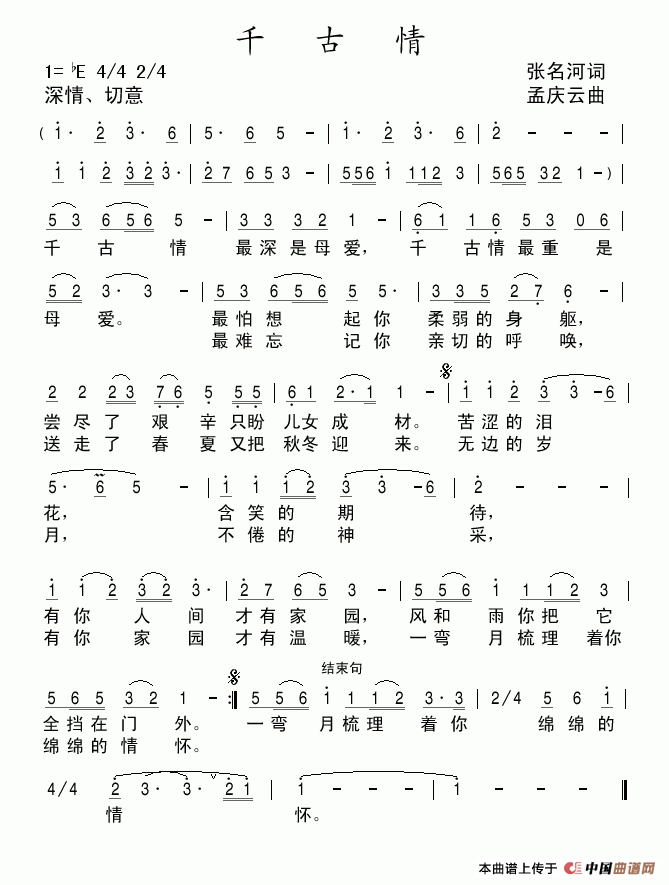 千 古 情
1= ♭E 4/4 2/4
张名河词
深情、切意
孟庆云曲
( 1· 2 3· 6 | 5· 6 5 - | 1· 2 3· 6 | 2 - - - |
1 1 2 3 2 3· | 2 7 6 5 3 - | 5 5 6 1 1 1 2 3 | 5 6 5 3 2 1 - ) |
5 3 6 5 6 5 - | 3 3 3 2 1 - | 6 1 1 6 5 3 0 6 |
千 古 情 最 深 是 母 爱, 千 古 情 最 重 是
5 2 3· 3 - | 5 3 6 5 6 5 5· | 3 3 5 2 7 6 - |
母 爱。 最 怕 想 起 你 柔 弱 的 身 躯,
最 难 忘 记 你 亲 切 的 呼 唤,
2 2 2 3 7 6 5 5 5 | 6 1 2· 1 1 - | 1 1 2 3 - 6 |
尝 尽 了 艰 辛 只盼 儿女 成 材。 苦 涩 的 泪
送 走 了 春 夏 又把 秋冬 迎 来。 无 边 的 岁
5· 6 5 - | 1 1 1 2 3 3 - 6 | 2 - - - |
花, 含 笑 的 期 待,
月, 不 倦 的 神 采,
1 1 2 3 2 3· | 2 7 6 5 3 - | 5 5 6 1 1 1 2 3 |
有 你 人 间 才 有 家 园, 风 和 雨 你 把 它
有 你 家 园 才 有 温 暖, 一 弯 月 梳 理 着你
结束句
5 6 5 3 2 1 - :‖ 5 5 6 1 1 1 2 3· 3 | 2/4 5 6 5 |
全 挡 在 门 外。 一 弯 月 梳 理 着 你 绵 绵 的
绵 绵 的 情 怀。
4/4 2 3· 3· 2 1 | 1 - - - | 1 - - - ‖
情 怀。
本曲谱上传于 中国曲谱网